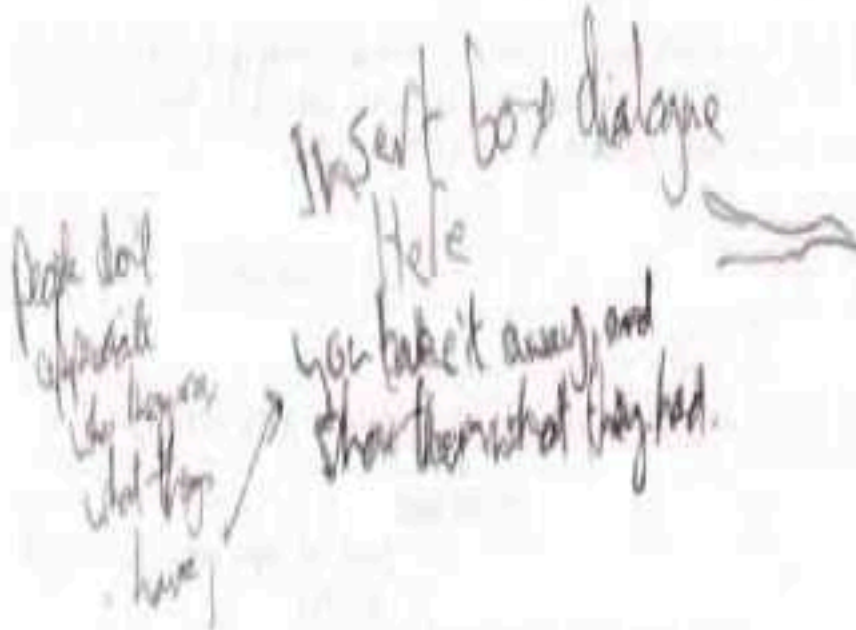 Insert box dialogue
Here
People don't
appreciate
who they are,
what they
have,
you take it away, and
show them what they had.